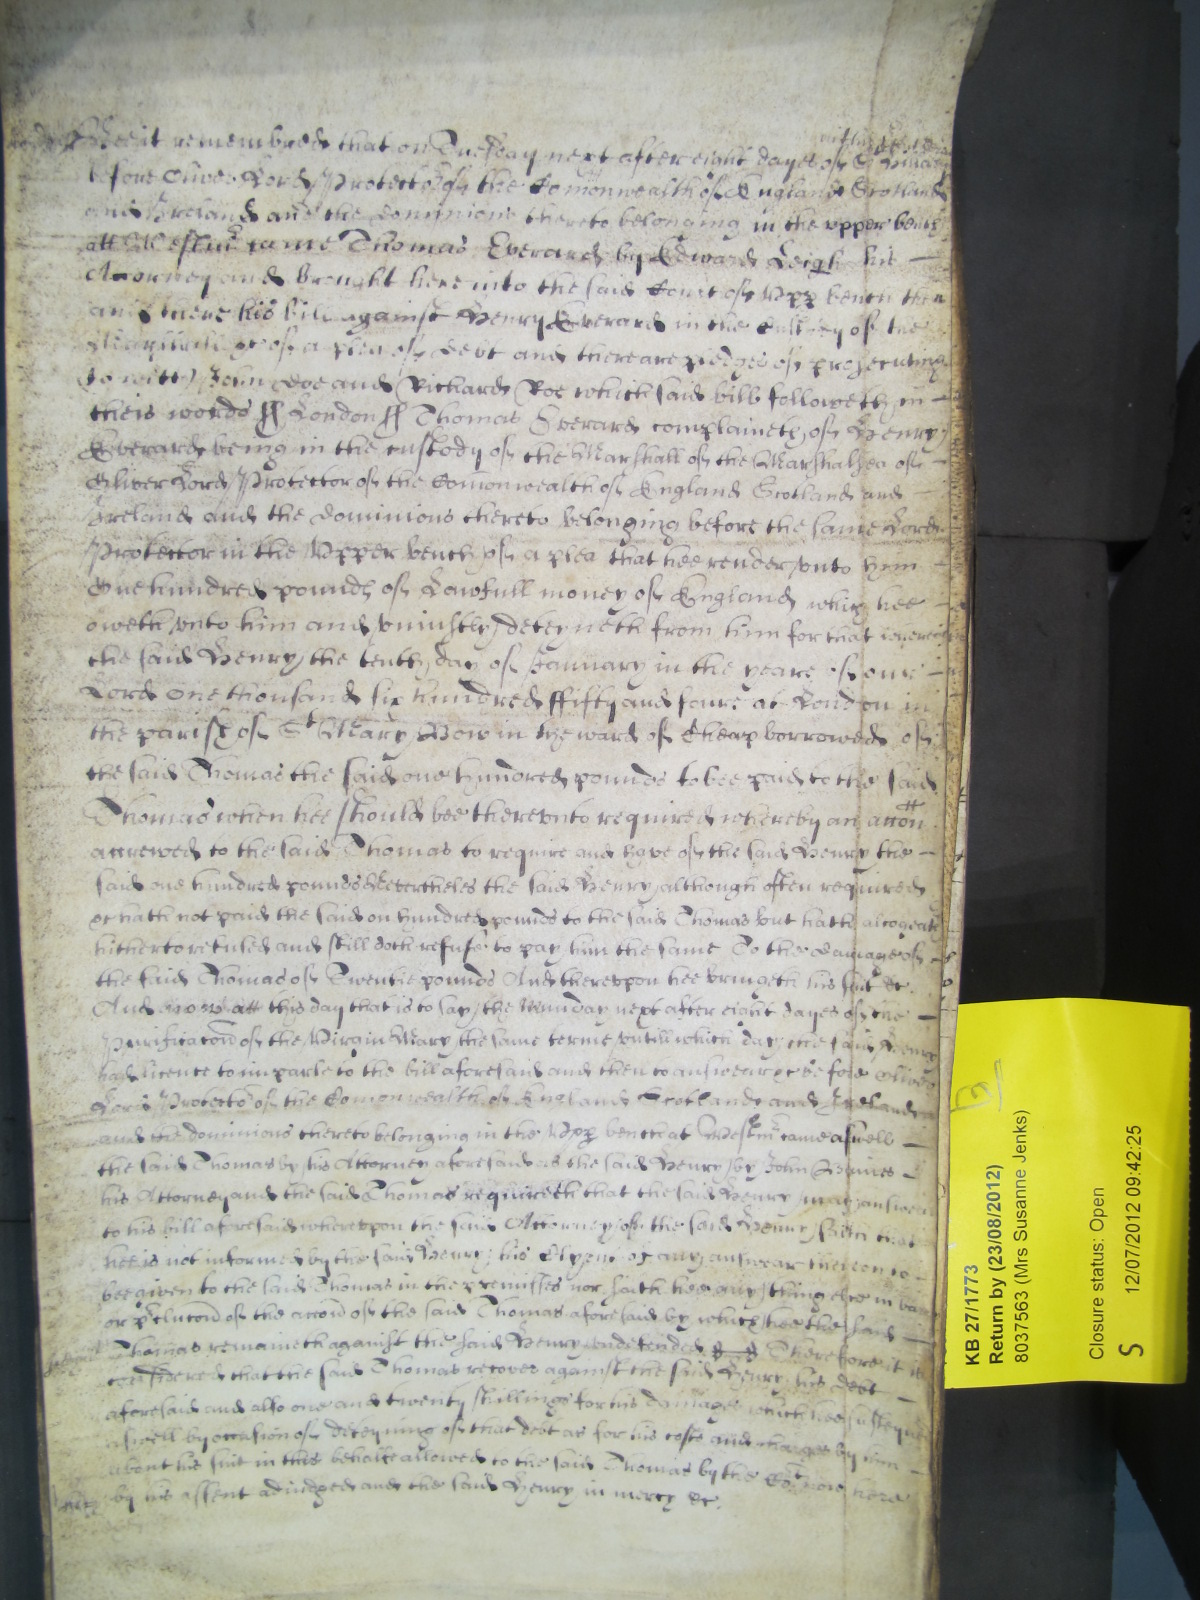 Bee it remembred that on Tuesday next after eight dayes of St Hillary
before Oliver Lord Protector of the Comonwealth of England Scotland
and Ireland and the dominions thereto belonging in the upper bench
att Westmr came Thomas Everard by Edward Leigh his
Attorney and brought here into the said Court of Upp bench then
and there his bill against Henry Everard in the Custody of the
Marshall &c of a plea of debt and there are pledges of prosecuting
(to witt) John Doe and Richard Roe which said bill followeth in
theis words ss London ss Thomas Everard complaineth of Henry
Everard being in the custody of the Marshall of the Marshalsea of
Oliver Lord Protector of the Comonwealth of England Scotland and
Ireland and the dominions thereto belonging before the same Lord
Protector in the Upper bench of a plea that hee render unto him
One hundred pounds of Lawfull money of England which hee
oweth unto him and uniustly deteyneth from him for that whereas
the said Henry the tenth day of January in the yeare of our
Lord one thousand six hundred fifty and foure at London in
the parish of St Mary Bow in the ward of Cheap borrowed of
the said Thomas the said one hundred pounds to bee paid to the said
Thomas when hee should bee thereunto required whereby an accon
accrewed to the said Thomas to require and have of the said Henry the
said one hundred pounds Neverthelesse the said Henry although often required
&c hath not paid the said on hundred pounds to the said Thomas but hath altogeather
hitherto refused and still doth refuse to pay him the same To the damage of
the said Thomas of Twentie pounds And thereupon hee bringeth his suit &c.
And now att this day that is to say the Munday next after eight dayes of the
Purificacon of the Virgin Mary the same terme untill which day the said Henry
had licence to imparle to the bill aforesaid and then to answear &c before Oliver
Lord Protector of the Comonwealth of England Scotland and Ireland
and the dominions thereto belonging in the Upp bench at Westmr came aswell
the said Thomas by his Attorney aforesaid as the said Henry by John
his Attorney and the said Thomas requireth that the said Henry may answear
to his bill aforesaid whereupon the said Attorney of the said Henry saith that
hee is not informed by the said Henry his Clyent of any answear thereon to
bee given to the said Thomas in the premisses nor saith hee any thing else in barr
or pclucon of the accon of the said Thomas aforesaid by which hee the said
Thomas remaineth against the said Henry undefended Therefore it is
considered that the said Thomas recover against the said Henry his debt
aforesaid and also one and twenty shillings for his damages which hee susteyned
aswell by occasion of deteyning of that debt as for his costs and charges by him
about his suit in this behalfe allowed to the said Thomas by the Cort now here
by his assent adiudged and the said Henry in mercy &c.
KB 27/1773
Return by (23/08/2012)
8037563 (Mrs Susanne Jenks)
Closure status: Open
S 12/07/2012 09:42:25